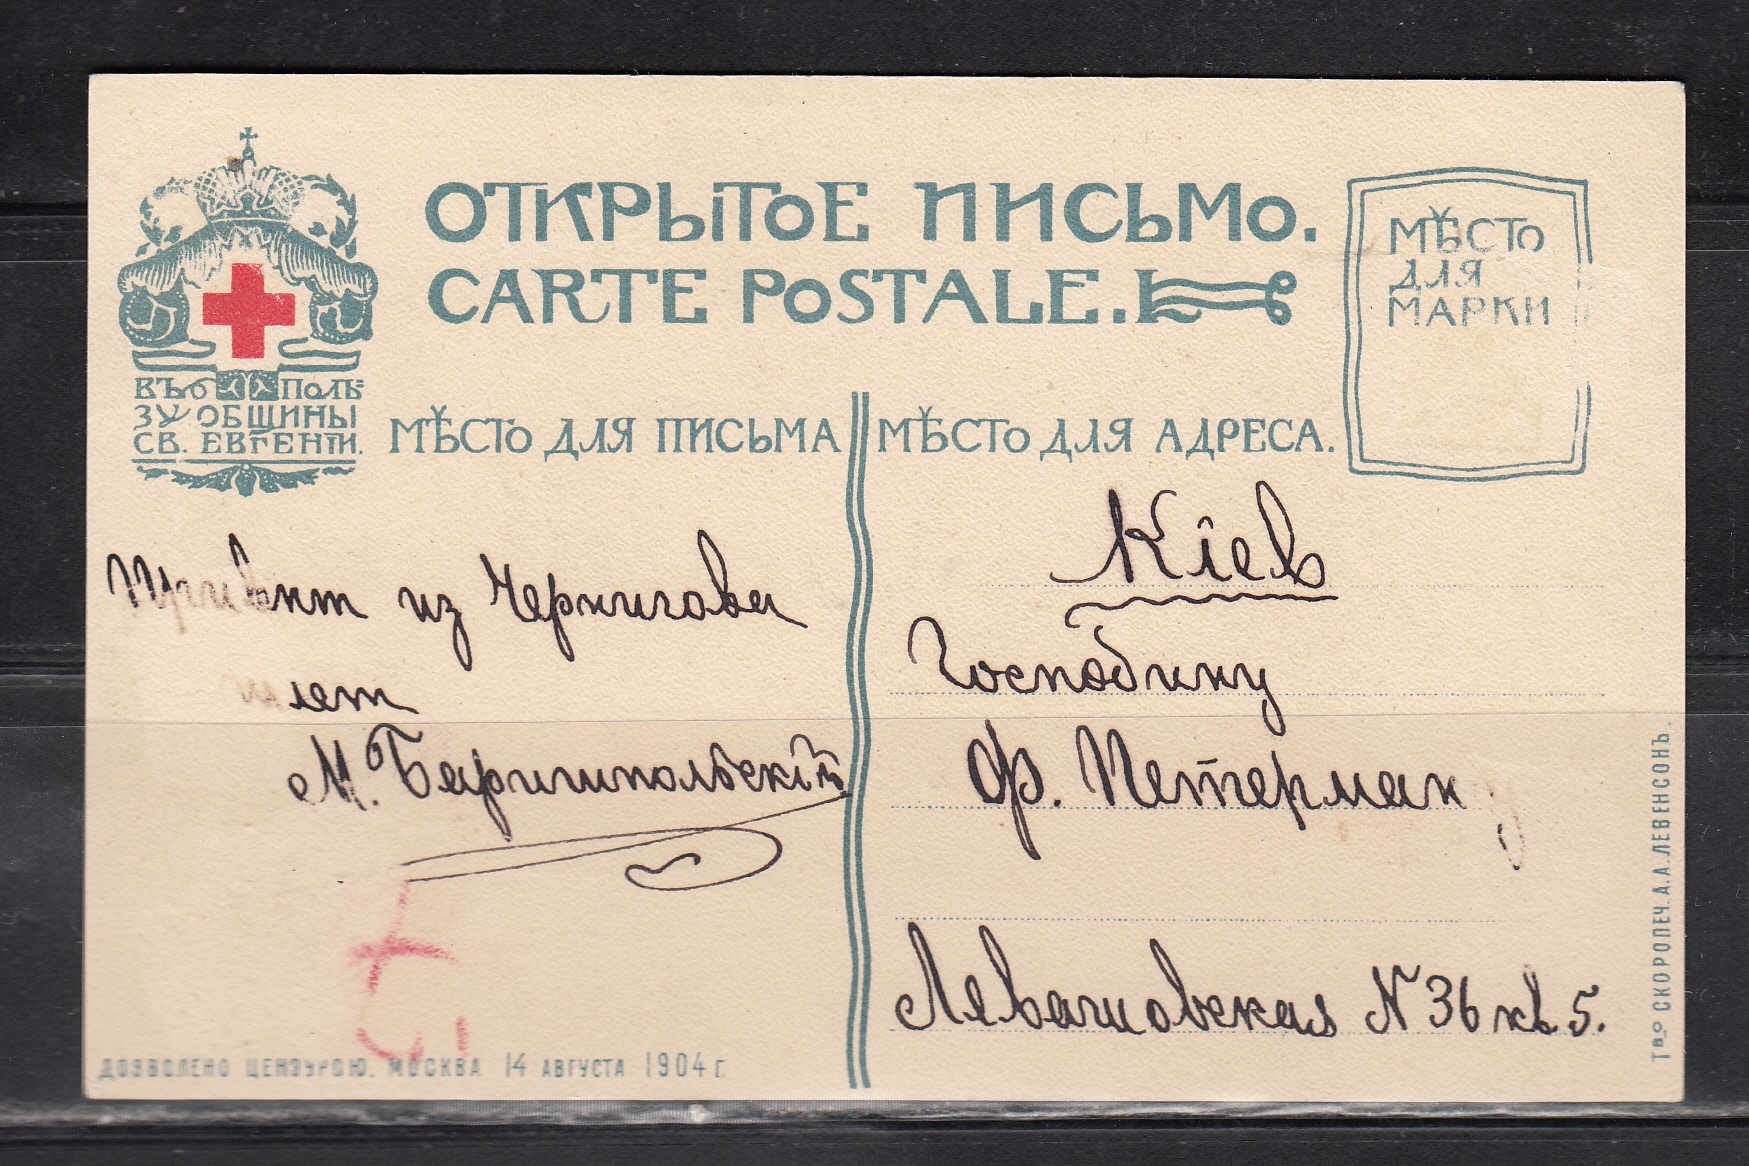 ОТКРЫТОЕ ПИСЬМО.
CARTE POSTALE.
МѢСТО
ДЛЯ
МАРКИ
ВЪ ПОЛЬ=
ЗУ ОБЩИНЫ
СВ. ЕВГЕНІИ.
МѢСТО ДЛЯ ПИСЬМА
МѢСТО ДЛЯ АДРЕСА.
Привѣт из Чернигова
шлет
М. Баришпольскій
Кіев
Господину
Ф. Петерману
Левашовская N 36 кв. 5.
ДОЗВОЛЕНО ЦЕНЗУРОЮ. МОСКВА 14 АВГУСТА 1904 г.
Тво СКОРОПЕЧ. А.А. ЛЕВЕНСОНЪ.